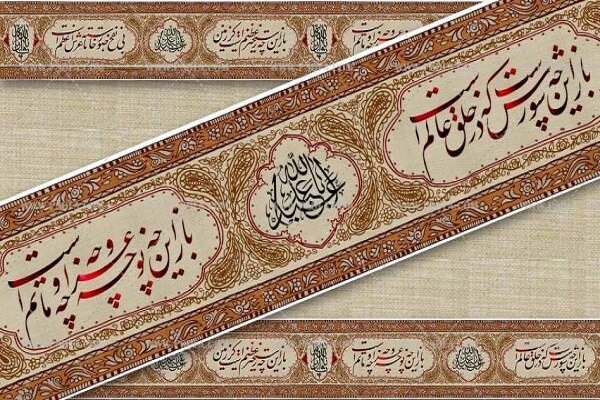 باز این چه رستخیز عظیم است کز زمین
بی نفخ صور خاسته تا عرش اعظم است
باز این چه شورش است که در خلق عالم است
یا اباعبدالله
باز این چه نوحه و چه عزا و چه ماتم است
باز این چه شورش است که در خلق عالم است
باز این چه نوحه و چه عزا و چه ماتم است
باز این چه رستخیز عظیم است کز زمین